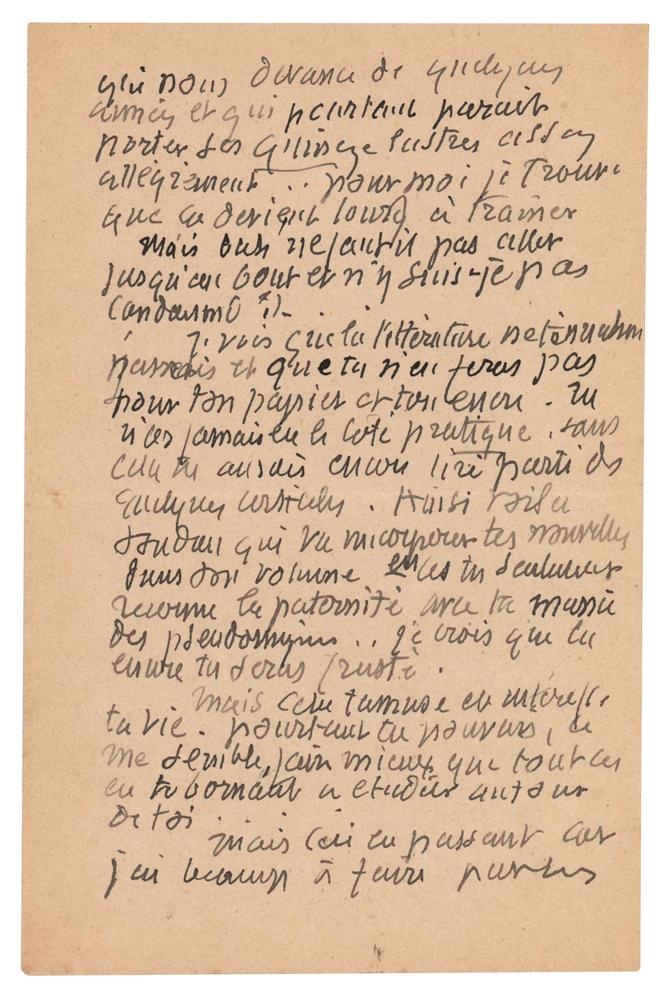 qui nous devance de quelques
années et qui pourtant parait
porter ses quinze lustres assez
allégrement .. pour moi je trouve
que ça devient lourd à trainer
Mais bah ne faut il pas aller
jusqu'au bout et n'y suis-je pas
condamné ?!-
Je vois que la littérature ne
jamais et que tu n'en feras pas
pour ton papier et ton encre - Tu
n'as jamais eu le coté pratique, sans
cela tu aurais encore tiré parti de
quelques . Ainsi voila
qui va incorporer tes nouvelles
dans son volume en as tu seulement
reconnu la paternité avec ta manie
des pseudonymes .. je crois que la
encore tu seras frusté .
Mais cela t'amuse et intéresse
ta vie . pourtant tu pouvais, ce
me semble, faire mieux que tout ça
en te bornant a etudier autour
de toi .
Mais ceci en passant car
j'ai beaucoup à faire